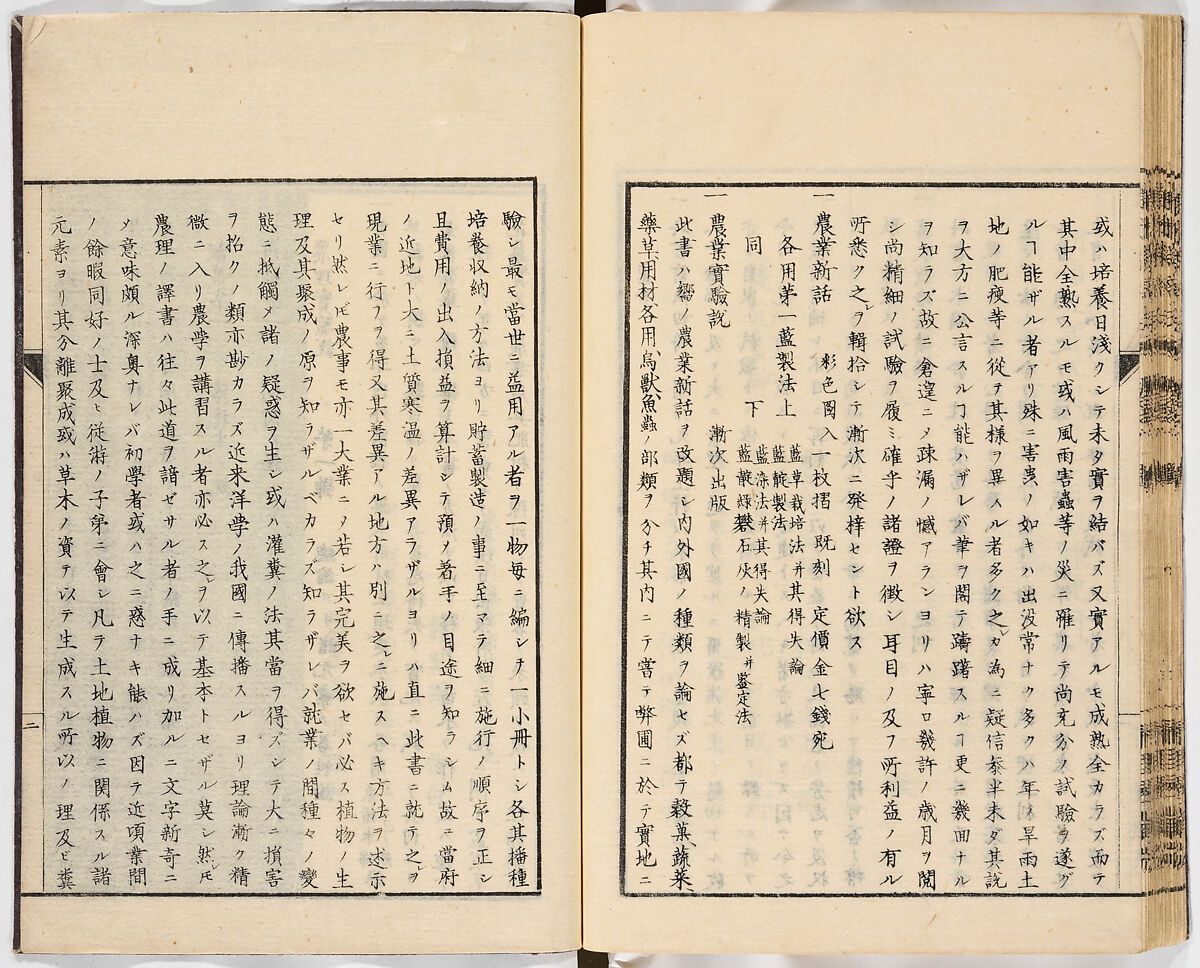 或ハ培養日淺クシテ未タ實ヲ結バズ又實アルモ成熟全カラズ而テ
其中全熟スルモ或ハ風雨害蟲等ノ災ニ罹リテ尚充分ノ試驗ヲ遂グ
ルヿ能ザル者アリ殊ニ害虫ノ如キハ出没常ナク多クハ年ノ旱雨土
地ノ肥瘦等ニ從テ其樣ヲ異スル者多ク之レカ為ニ疑信參半未ダ其説
ヲ大方ニ公言スルヿ能ハザレバ筆ヲ閣テ躊躇スルヿ更ニ幾回ナル
ヲ知ラズ故ニ倉遑ニメ疎漏ノ憾アランヨリハ寧ロ幾許ノ歳月ヲ閲
シ尚精細ノ試驗ヲ履ミ確乎ノ諸證ヲ徴シ耳目ノ及フ所利益ノ有ル
所悉ク之レヲ輯拾シテ漸次ニ發梓セント欲ス
一 農業新話 彩色圖入一枚摺 既刻 定價金七錢宛
各用第一藍製法上 藍草栽培法并其得失論 藍靛製法
同 下 藍染法并其得失論 藍靛緑礬石灰ノ精製并鑒定法
一 農業實驗説 漸次出版
此書ハ嚮ノ農業新話ヲ改題シ内外國ノ種類ヲ論セズ都テ穀菓蔬菜
藥草用材各用鳥獸魚蟲ノ部類ヲ分チ其内ニテ嘗テ弊圃ニ於テ實地ニ
驗シ最モ當世ニ益用アル者ヲ一物毎ニ編シテ一小冊トシ各其播種
培養収納ノ方法ヨリ貯蓄製造ノ事ニ至マテ細ニ施行ノ順序ヲ正シ
且費用ノ出入損益ヲ算計シテ預メ着手ノ目途ヲ知ラシム故ニ當府
ノ近地ト大ニ土質寒温ノ差異アラザルヨリハ直ニ此書ニ就テ之ヲ
現業ニ行フヲ得又其差異アル地方ハ別ニ之レニ施スヘキ方法ヲ述示
セリ然レ𪜈農事モ亦一大業ニメ若シ其完美ヲ欲セバ必ス植物ノ生
理及其聚成ノ原ヲ知ラザルベカラズ知ラザレバ就業ノ間種々ノ變
態ニ抵觸メ諸ノ疑惑ヲ生シ或ハ灌糞ノ法其當ヲ得ズシテ大ニ損害
ヲ招クノ類亦尠カラズ近来洋學ノ我國ニ傳播スルヨリ理論漸ク精
微ニ入リ農学ヲ講習スル者亦必ス之レヲ以テ基本トセザル莫シ然レ𪜈
農理ノ譯書ハ往々此道ヲ諳ゼサル者ノ手ニ成リ加ルニ文字新奇ニ
メ意味頗ル深奥ナレバ初學者或ハ之ニ惑ナキ能ハズ因テ近頃業間
ノ餘暇同好ノ士及ヒ從游ノ子弟ニ會シ凡ヲ土地植物ニ関係スル諸
元素ヨリ其分離聚成或ハ草木ノ資テ以テ生成スル所以ノ理及ビ糞
二